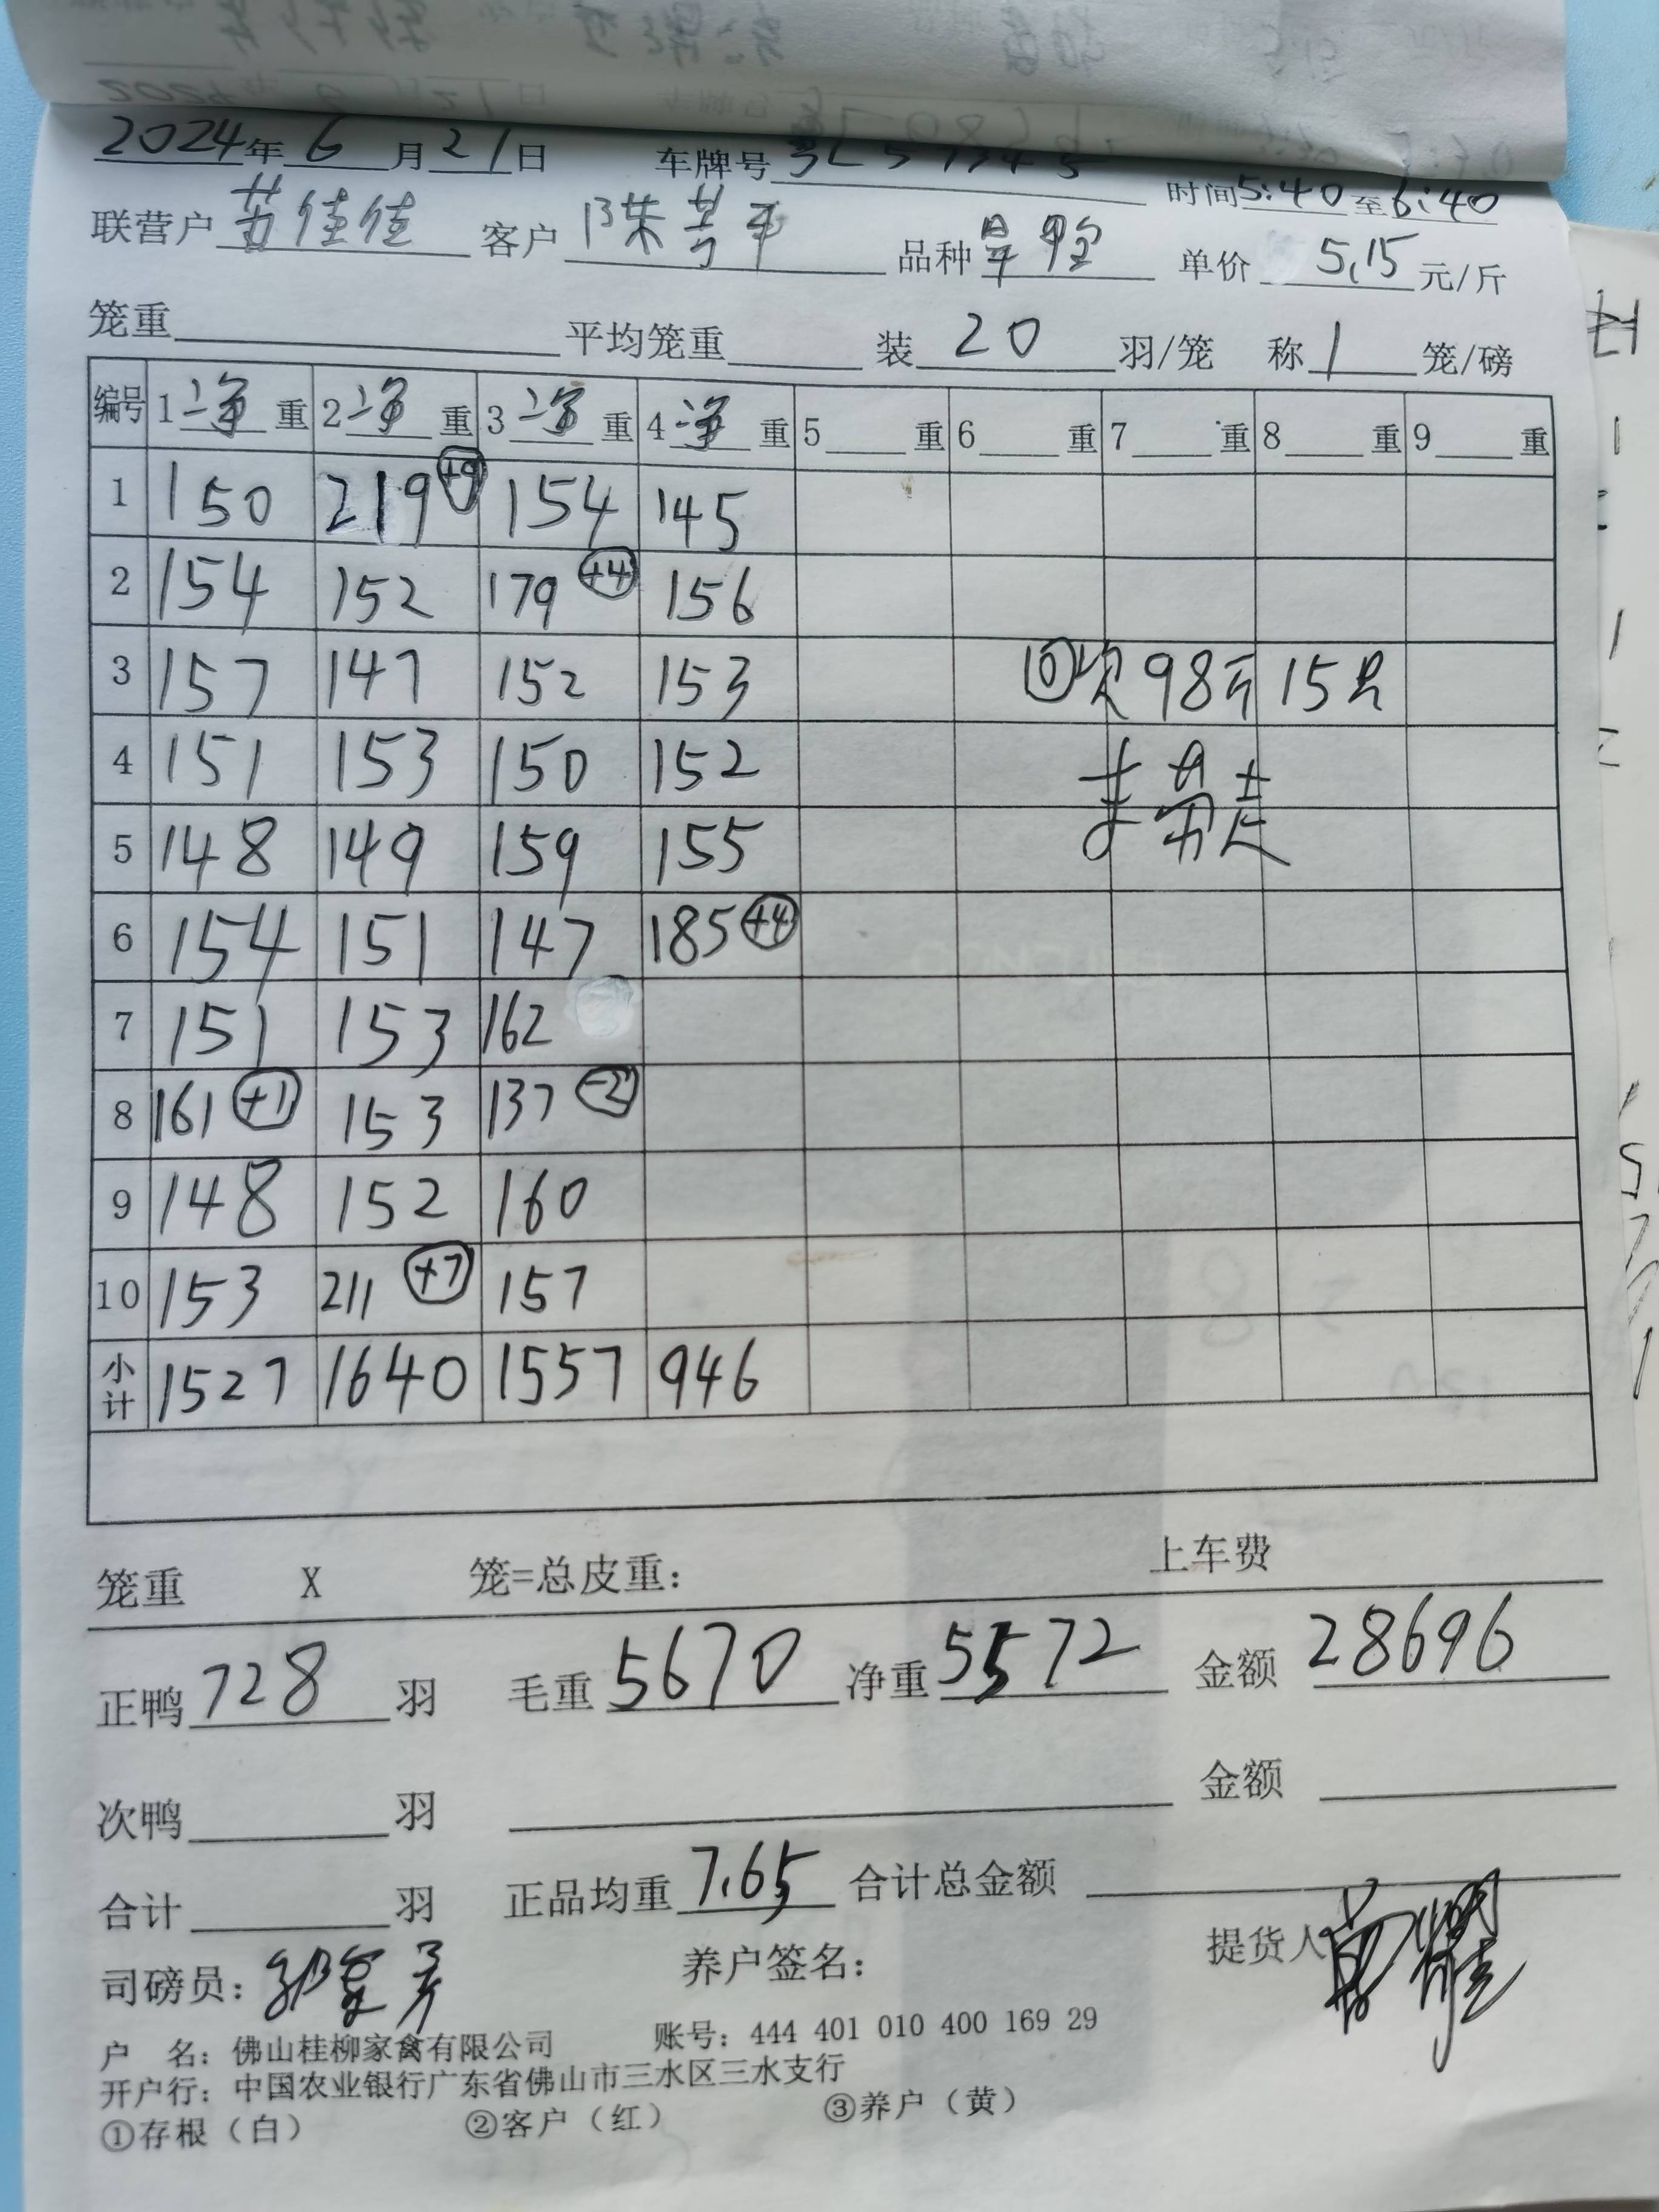 2024年6月21日 车牌号
时间5:40至6:40
联营户 苏佳佳 客户 陈芳平 品种 旱鸭 单价 5.15元/斤
笼重 平均笼重 装 20 羽/笼 称 1 笼/磅
编号 1净重 2净重 3净重 4净重 5 重 6 重 7 重 8 重 9 重
1 150 219 +9 154 145
2 154 152 179 +4 156
3 157 147 152 153 回次98斤15只
4 151 153 150 152
5 148 149 159 155
6 154 151 147 185 +4
7 151 153 162
8 161 +1 153 137 -2
9 148 152 160
10 153 211 +7 157
小计 1527 1640 1557 946
笼重 X 笼=总皮重: 上车费
正鸭 728 羽 毛重 5670 净重 5572 金额 28696
次鸭 羽 金额
合计 羽 正品均重 7.65 合计总金额
司磅员: 养户签名: 提货人
户 名: 佛山桂柳家禽有限公司 账号: 444 401 010 400 169 29
开户行: 中国农业银行广东省佛山市三水区三水支行
①存根（白） ②客户（红） ③养户（黄）